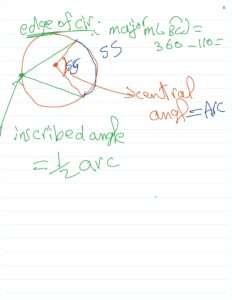 edge of cir. major m(BC)=
360 - 110=
55
55
central
angle = Arc
inscribed angle
= 1/2 arc